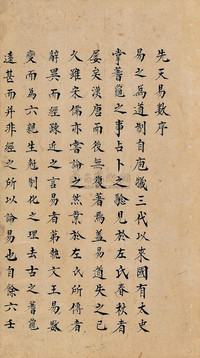 先天易數序
易之為道制自庖犧三代以來國有太史
掌蓍龜之事占卜之驗見於左氏春秋者
屢矣漢唐而後無復著焉蓋易道失之已
久雖宋儒亦嘗論之然業於左氏所傳者
解異而經疎近之言易者第執文王易數
變而為六親生剋制化之理去古之蓍龜
遠甚而并非經之所以論易也自餘六壬